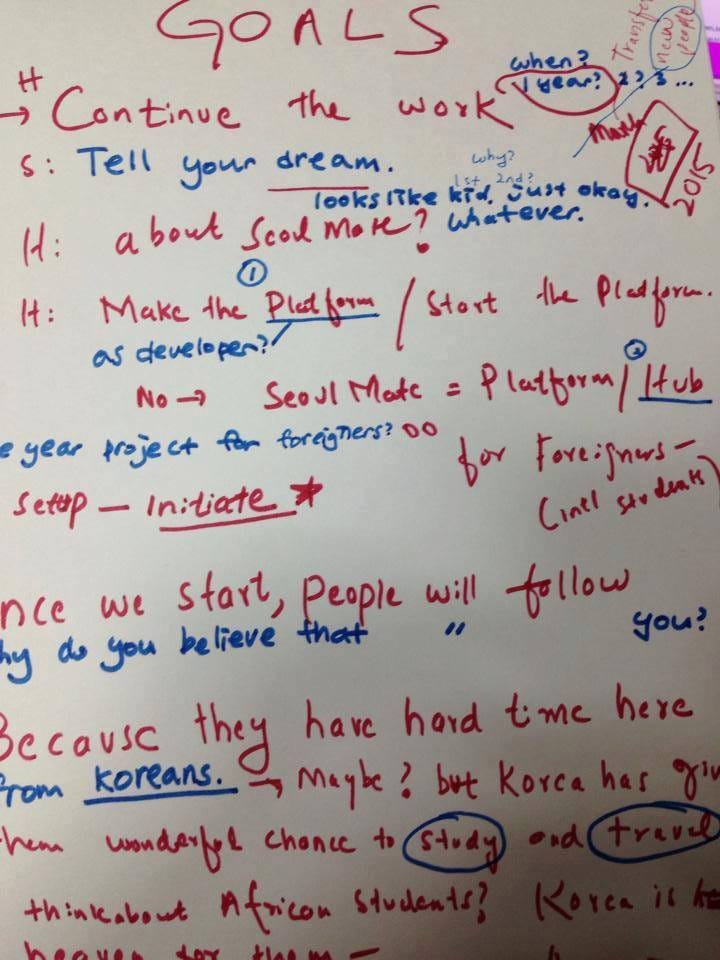 GOALS
Transfer
new people
when?
1 year? 2? 3 ...
H
→ Continue the work
March
2015
S: Tell your dream.
why?
1st 2nd?
looks like kid. just okay.
H: about Seoul Mate? whatever.
①
H: Make the Platform / Start the Platform.
as developer?
②
No → Seoul Mate = Platform / Hub
e year project for foreigners? OO
for Foreigners -
Setup - Initiate
(intl students
nce we start, people will follow
hy do you believe that " you?
Because they have hard time here
from koreans. → Maybe? but Korea has giv
them wonderful chance to study and travel
think about African students? Korea is
heaven for them -